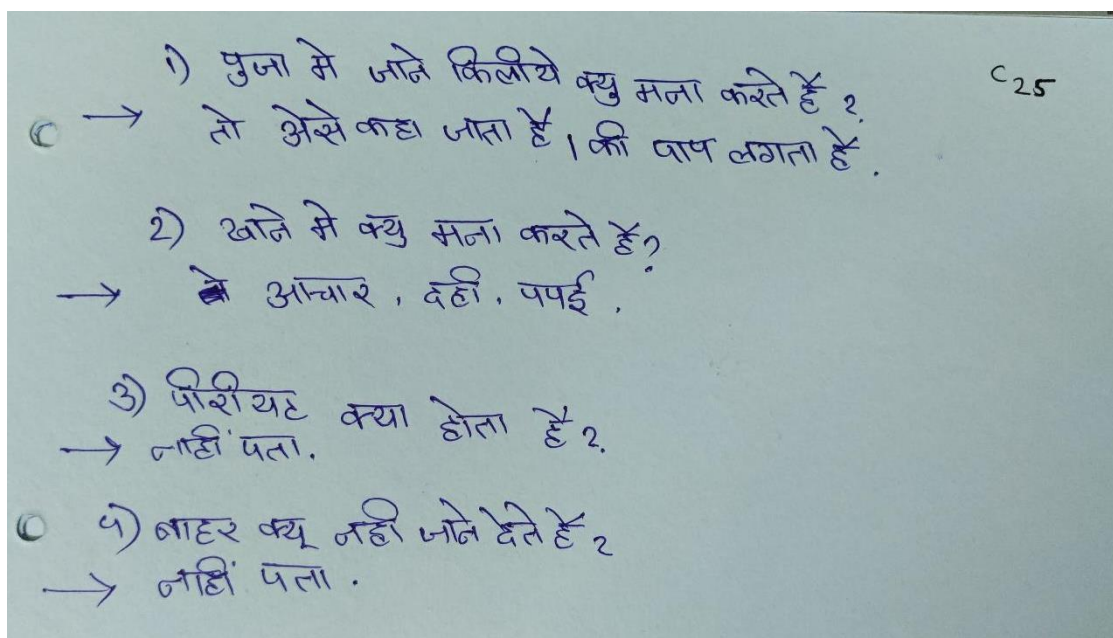 C25
1) पुजा मे जाने किलीये क्यु मना करते हैं ?
→ तो अेसे कहा जाता है । की पाप लगता है .
2) खाने मे क्यु मना करते हैं ?
→ आचार , दही , पपई .
3) पीरीयट क्या होता है ?
→ नाहीं पता .
4) बाहर क्यू नही जाने देते हैं ?
→ नाहीं पता .